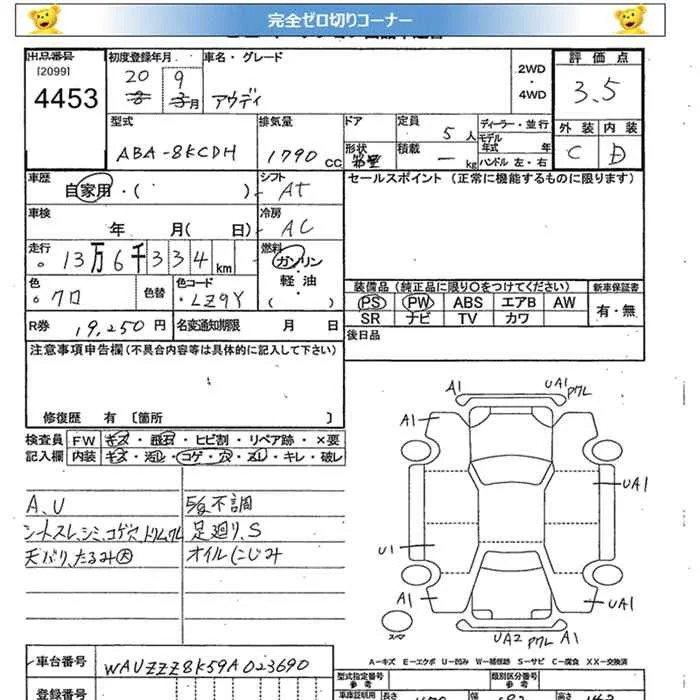 完全ゼロ切りコーナー
出品番号
[2099]
4453
初度登録年月
20 9
月
車名・グレード
アウディ
2WD
・
4WD
評価点
3.5
型式
ABA-8KCDH
排気量
1790 CC
ドア
形状
定員
5 人
積載
— kg
ディーラー・並行
モデル
年式 年
ハンドル 左・右
外装 内装
C D
車歴
自家用・( )
シフト
AT
セールスポイント (正常に機能するものに限ります)
車検
年 月( 日)
冷房
AC
走行
13万6千334km
燃料
ガソリン
・
軽油
・
( )
色
クロ
色替
色コード
LZ9Y
装備品 (純正品に限り○をつけてください)
新車保証書
PS PW ABS エアB AW
SR ナビ TV カワ
有・無
R券 19,250円
名変通知期限 月 日
後日品
注意事項申告欄 (不具合内容等は具体的に記入して下さい)
修復歴 有 〔箇所 〕
検査員
記入欄
FW キズ・飛石・ヒビ割・リペア跡・×要
内装 キズ・汚レ・コゲ・穴・スレ・キレ・破レ
A、U
シートスレ、シミ、コゲ穴、トリムワレ
天バリ、たるみ大
不調
足廻り、S
オイルにじみ
A1
UA1
Pワレ
A1
A1
UA1
U1
A1
UA1
スマ
UA2 Pワレ A1
A-キズ E-エクボ U-凹み W-補修跡 S-サビ C-腐食 XX-交換済
車台番号
WAUZZZ8K59A023690
登録番号
型式指定番号
参考
類別区分番号
参考
車庫証明用
長さ
幅
高さ